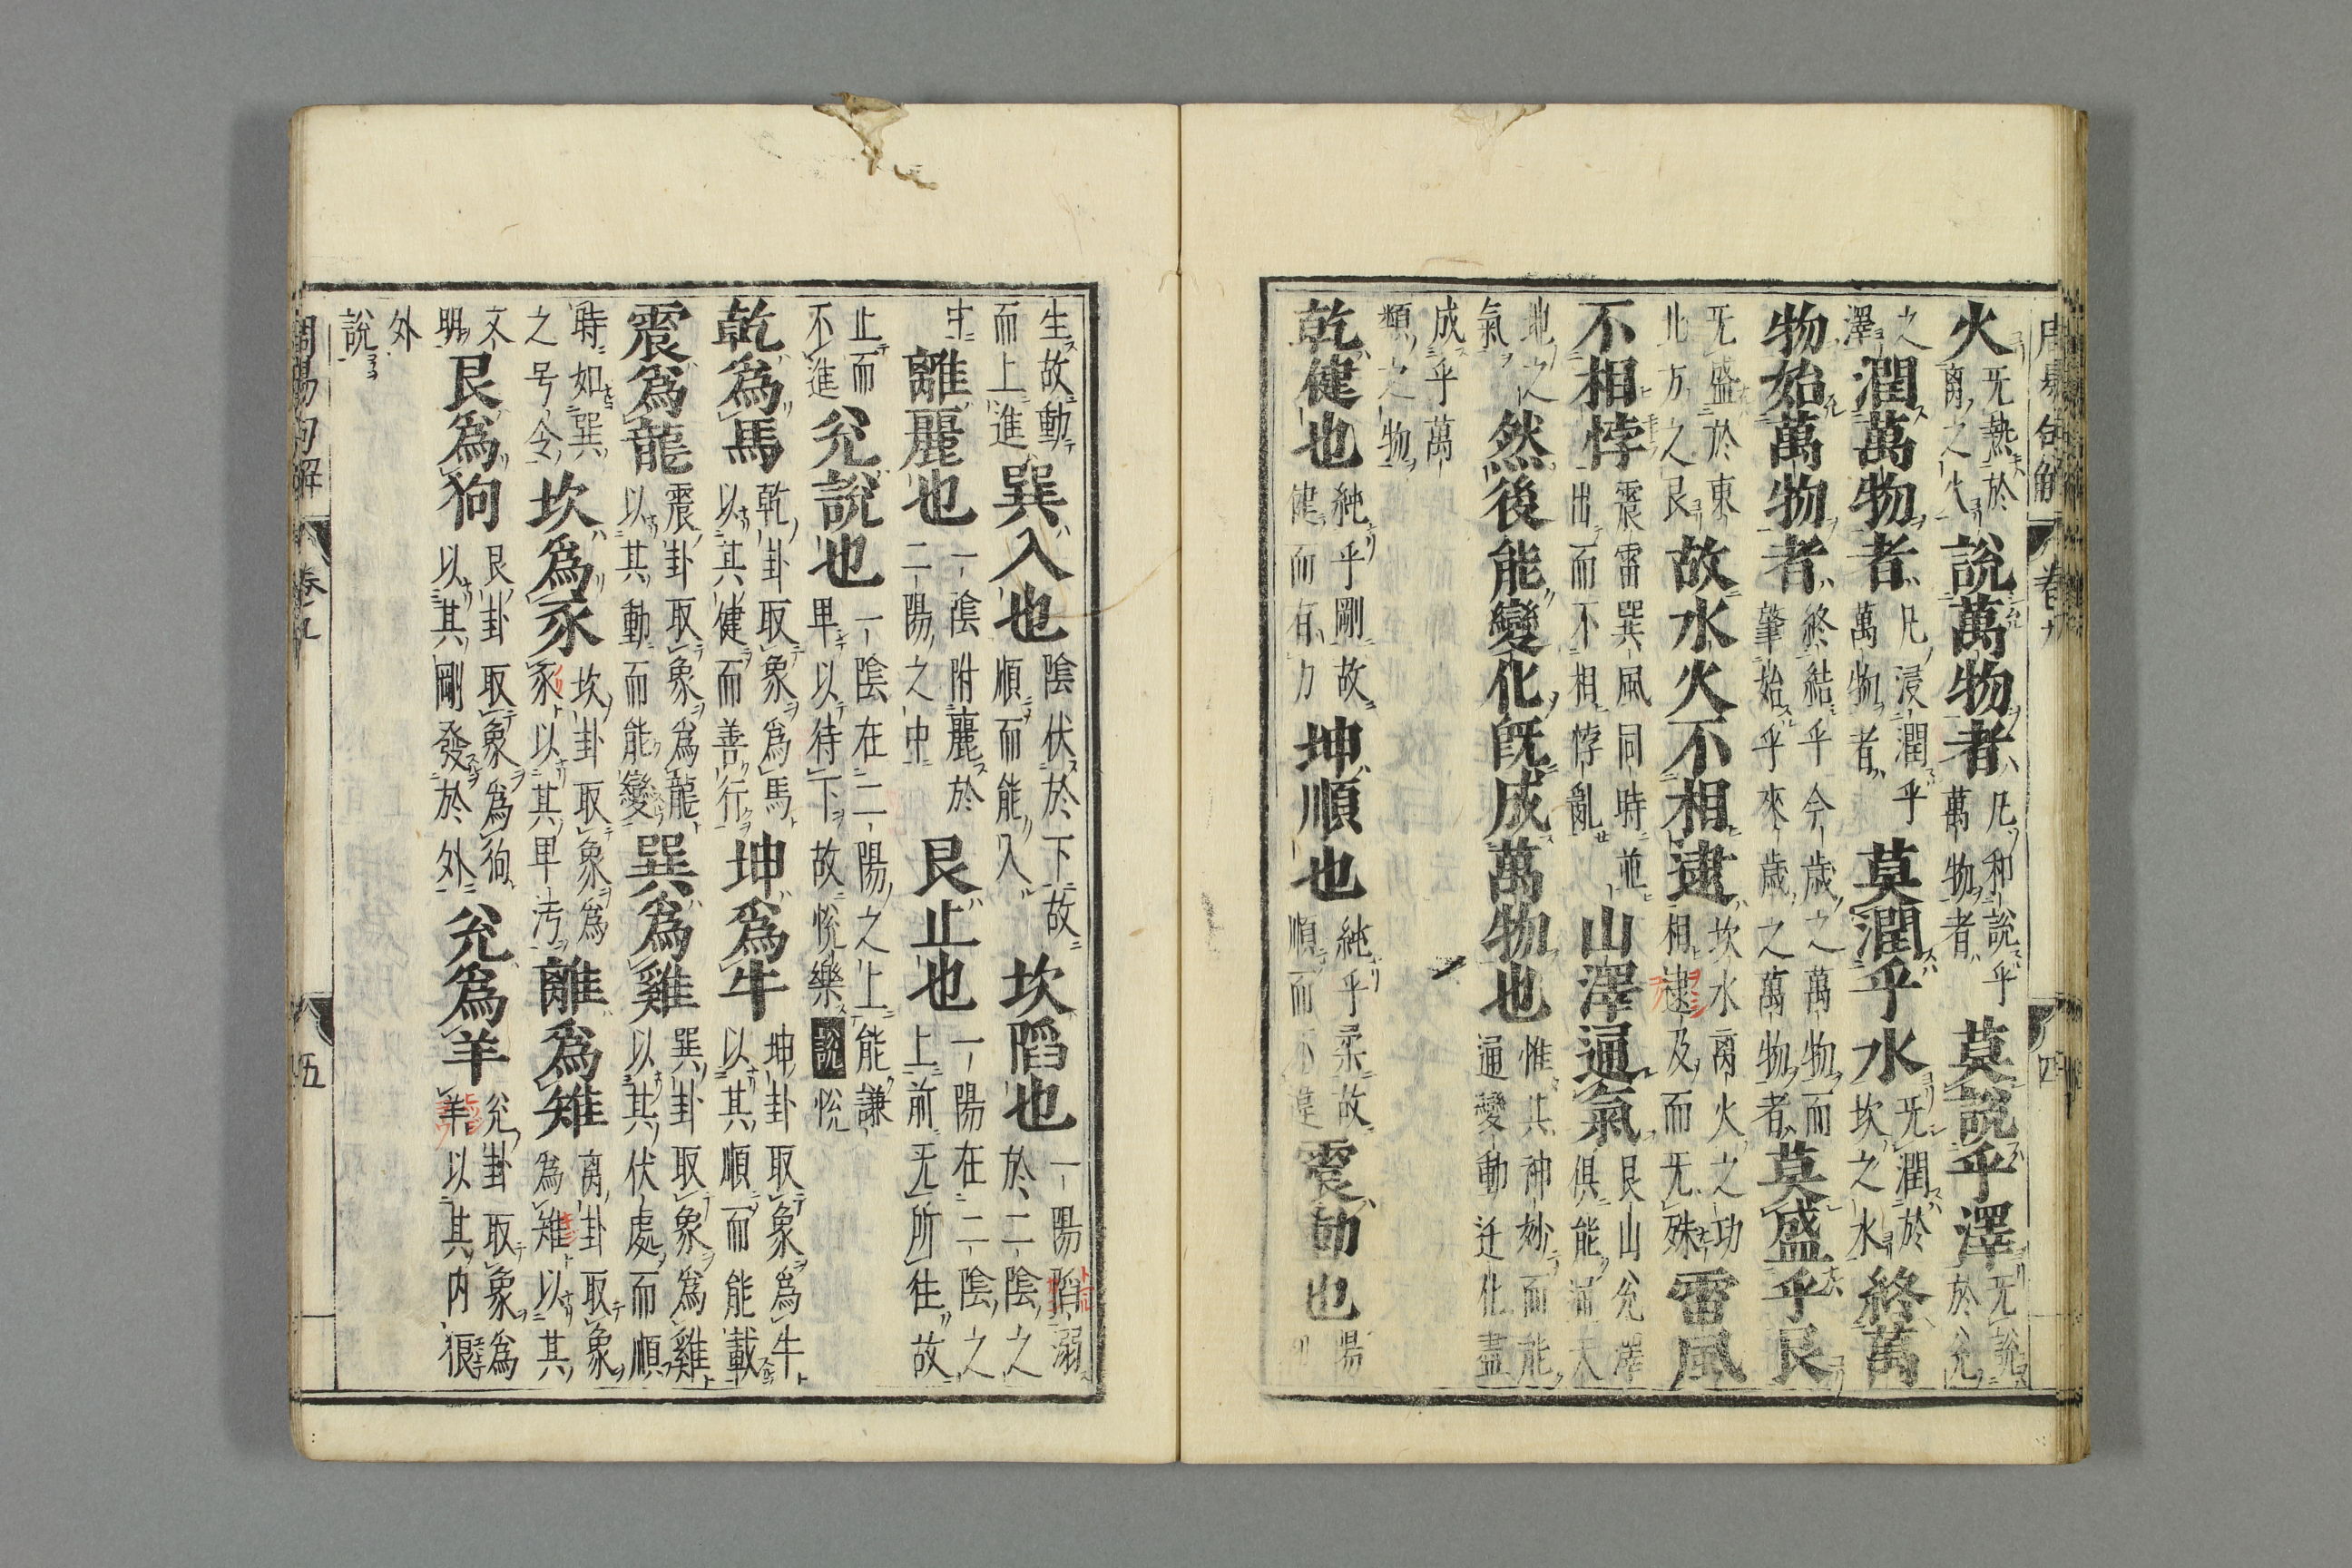 周易句解 卷九 四
火无熱於离之火說萬物者凡和說乎萬物者莫說乎澤无說於兊
之澤潤萬物者凡浸潤乎萬物者莫潤乎水无潤於坎之水終萬
物始萬物者終結乎今歲之萬物而肇始乎來歲之萬物者莫盛乎艮
无盛於東北方之艮故水火不相逮坎水离火之功相逮及而无殊雷風
不相悖震雷巽風同時並出而不相悖亂山澤通氣艮山兊澤俱能涌天
地之氣然後能變化既成萬物也惟其神妙而能通變動迁化盡
成乎萬類之物
乾健也純乎剛故健而有力坤順也純乎柔故順而不違震動也陽
生故動而上進巽入也陰伏於下故順而能入坎䧟也一陽䧟溺於二陰之
中離麗也一陰附麗於二陽之中艮止也一陽在二陰之上前无所往故
止而不進兊說也一陰在二陽之上能謙卑以待下故悦樂說悦
乾為馬乾卦取象為馬以其健而善行坤為牛坤卦取象為牛以其順而能載
震為龍震卦取象為龍以其動而能變巽為雞巽卦取象為雞以其伏處而順
時如巽之号令坎為豕坎卦取象為豕以其卑汚離為雉离卦取象為雉以其
文明艮為狗艮卦取象為狥以其剛發於外兊為羊兊卦取象為羊以其内狠
外說
周易句解 卷九 五